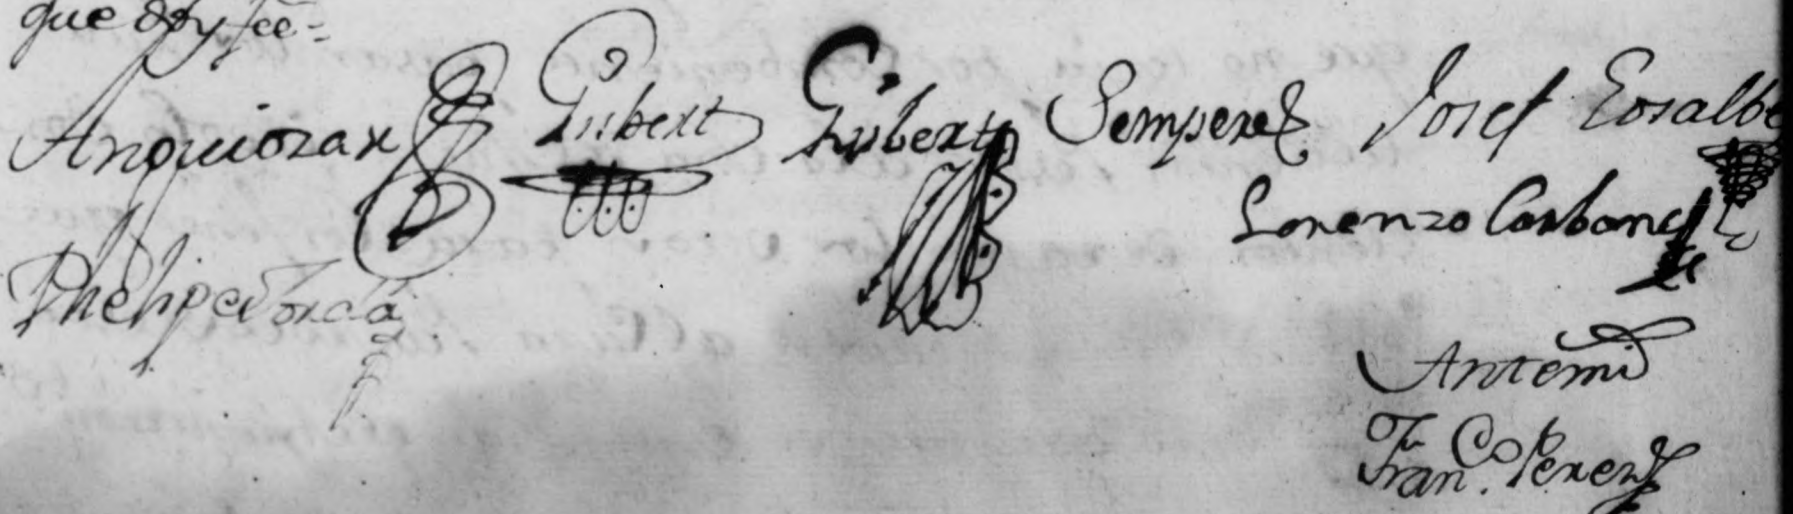 que doy fee=
Anguiozar Gisbert Gisbert Sempere Josef Gosalbe
Lorenzo Carbonel
Phelipe Jordá
Antemi
Fran.co Perez